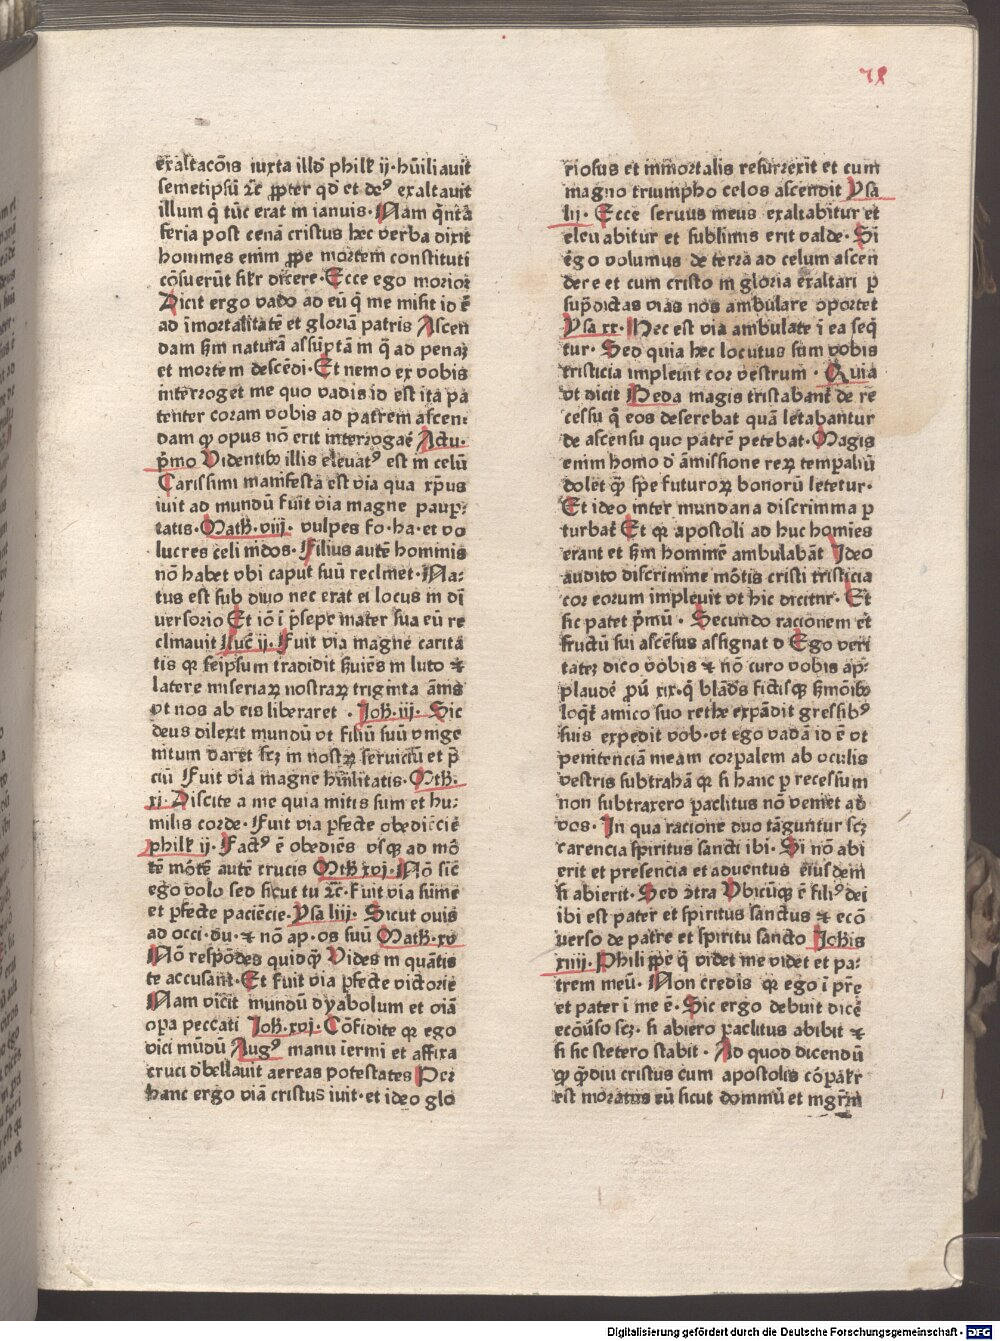 78
exaltacōis iuxta illd̄ philł ij·hūiliauit
semetipsū ⁊c̄ ꝓpter qd̄ et de⁹ exaltauit
illum q̄ tūc erat in ianuis·Nam q̄nta
feria post cenā cristus hec verba dixit
hommes enim ꝓpe mortem constituti
cōsuerūt sil'r dicere·Ecce ego morior
Dicit ergo vado ad eū q̄ me misit id ē
ad īmortalitatē et gloriā patris Ascen
dam scd̄m naturā assūptā in q̄ ad penaȝ
et mortem descēdi·Et nemo ex vobis
interroget me quo vadis id est ita pa
tenter coram vobis ad patrem ascen:
dam qp opus nō erit interrogaē Actu·
p̄mo Videntibꝫ illis eleuat⁹ est in celū
Carissimi manifesta est via qua xp̄us
iuit ad mundū fuit via magne paup̄:
tatis·Math·viij· vulpes fo·ha·et vo
lucres celi nidos·Filius autē hommis
nō habet vbi caput suū reclinet·Na:
tus est sub diuo nec erat ei locus in di
uersorio Et iō ī p̄sepe mater sua eū re
clinauit Luc̄ ij·Fuit via magne carita
tis qꝛ seipsum tradidit ẜuiēs in luto ⁊
latere miseriaꝝ nostraꝝ triginta ānis
vt nos ab eis liberaret ·Joh·iij· Sic
deus dilexit mundū vt filiū suū vnige
nitum daret scȝ in nostꝝ seruiciū et p̄
ciū Fuit via magne hūilitatis·Mth·
xj·Discite a me quia mitis sum et hu:
milis corde·Fuit via p̄fecte obediēcie
philł ij·Fact⁹ ē obediēs vsqꝫ ad mō
tē mōtē autē crucis Mth xvj·Nō sic̄
ego volo sed sicut tu ⁊c̄·Fuit via sūme
et p̄fecte paciēcie·Ysa liij· Sicut ouis
ad occi·du·⁊ nō ap·os suū Math·xv
Nō respōdes quicq̄ Vides in quātis
te accusant·Et fuit via p̄fecte victorie
Nam vicit mundū dyabolum et oīa
opa peccati Joh·xvj·Cōfidite qꝛ ego
vici mūdū Aug⁹ manu īermi et affixa
cruci d̄bellauit aereas potestates Per
hanc ergo viā cristus iuit·et ideo glo
riosus et inmortalis resurrexit et cum
magno triumpho celos ascendit Ysa
lij· Ecce seruus meus exaltabitur et
eleuabitur et sublimis erit valde·Si
ego volumus de terra ad celum ascen
dere et cum cristo in gloria exaltari p
sup̄dictas vias nos ambulare oportet
Ysa xx·Hec est via ambulate ī ea seq̄
tur·Sed quia hec locutus sum vobis
tristicia impleuit cor vestrum · Quia
vt dicit Beda magis tristabant̄ de re
cessu q̄ eos deserebat quā letabantur
de ascensu quo patrē petebat·Magis
enim homo d̄ āmissione reꝝ tempaliū
dolet q̄ spe futuroꝝ bonorū letetur·
Et ideo inter mundana discrimina p
turbat̄ Et qꝛ apostoli ad huc homīes
erant et scd̄m hommē ambulabāt Ideo
audito discrimine mōtis cristi tristicia
cor eorum impleuit vt hic dicitur· Et
sic patet p̄mū · Secundo racionem et
fructū sui ascēsus assignat d Ego veri
tatē dico vobis ⁊ nō curo vobis ap:
plaudē pū xix·q̄ blādis fictisqꝫ ẜmōibꝫ
loqt̄ amico suo rethe expādit gressib⁹
suis expedit vob·vt ego vadā id ē vt
penitenciā meam corpalem ab oculis
vestris subtrahā qꝛ si hanc p recessum
non subtraxero paclitus nō veniet ad
vos·In qua racione duo tāguntur scȝ
carencia spiritus sancti ibi·Si nō abi
erit et presencia et aduentus eiusdem
si abierit·Sed ↄtra Vbicūqꝫ ē fili⁹ dei
ibi est pater et spiritus sanctus ⁊ ecō
uerso de patre et spiritu sancto Johis
xiiij·Philippe q̄ videt me videt et pa:
trem meū·Non credis qꝛ ego ī pr̄e
et pater ī me ē·Sic ergo debuit dicē
ecōuso scȝ·si abiero paclitus abibit ⁊
si sic stetero stabit·Ad quod dicendū
qꝛ q̄diu cristus cum apostolis cōpalr̄
est moratus eū sicut dommū et mgr̄m
Digitalisierung gefördert durch die Deutsche Forschungsgemeinschaft · DFG